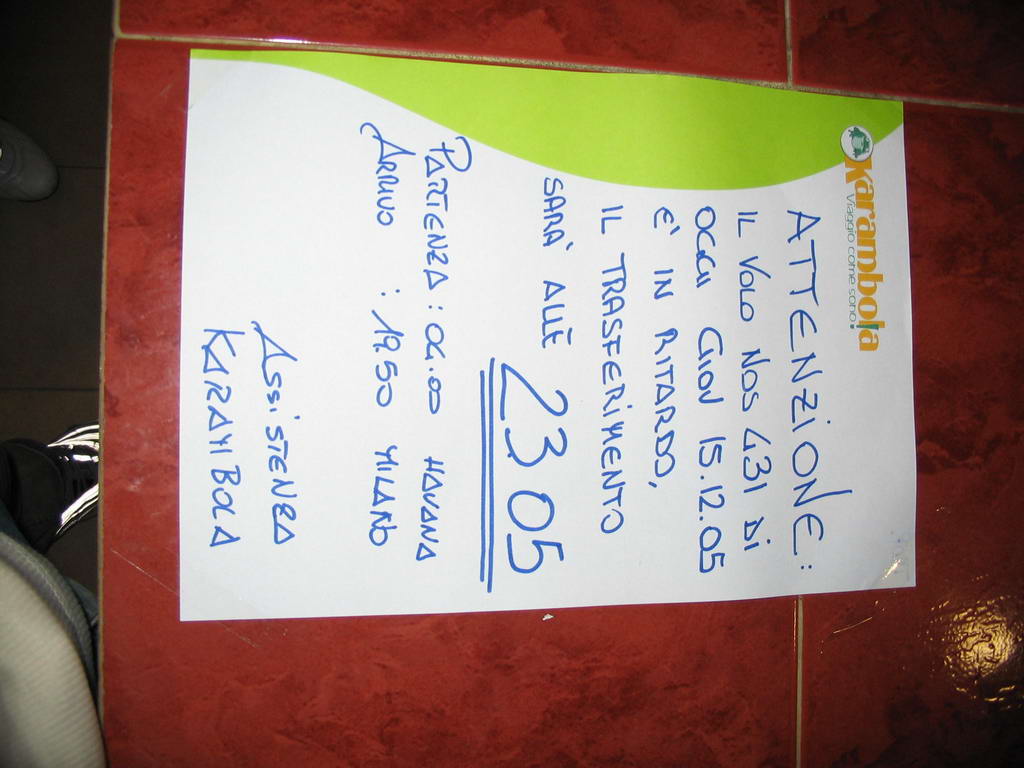 Karambola
Viaggio come sono!
ATTENZIONE:
IL VOLO NOS 431 DI
OGGI GIOV 15.12.05
È IN RITARDO,
IL TRASFERIMENTO
SARÀ ALLE 23 05
PARTENZA: 06.00 HAVANA
ARRIVO : 19.50 MILANO
ASSISTENZA
KARAMBOLA